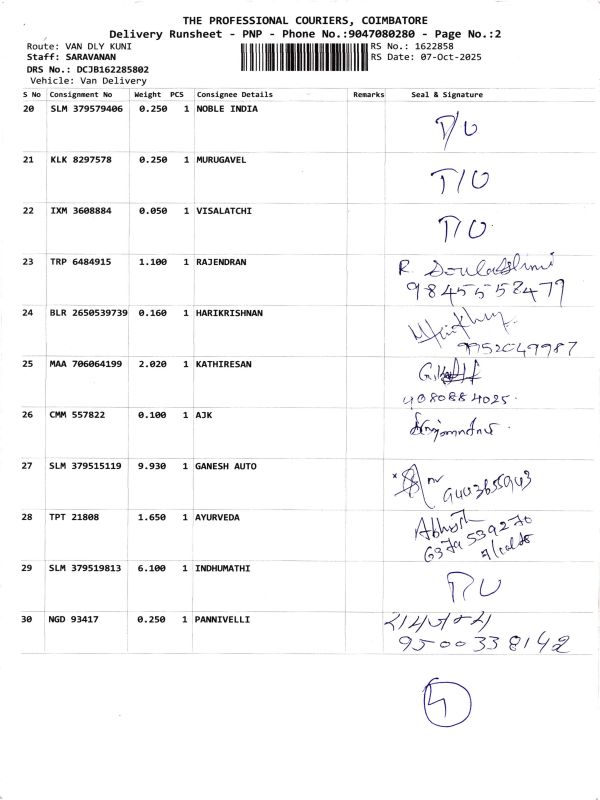 THE PROFESSIONAL COURIERS, COIMBATORE
Delivery Runsheet - PNP - Phone No.:9047080280 - Page No.:2
Route: VAN DLY KUNI RS No.: 1622858
Staff: SARAVANAN RS Date: 07-Oct-2025
DRS No.: DCJB162285802
Vehicle: Van Delivery
S No Consignment No Weight PCS Consignee Details Remarks Seal & Signature
20 SLM 379579406 0.250 1 NOBLE INDIA
T/U
21 KLK 8297578 0.250 1 MURUGAVEL
T/U
22 IXM 3608884 0.050 1 VISALATCHI
T/U
23 TRP 6484915 1.100 1 RAJENDRAN
R
9845558477
24 BLR 2650539739 0.160 1 HARIKRISHNAN
9952049987
25 MAA 706064199 2.020 1 KATHIRESAN
4080884025.
26 CMM 557822 0.100 1 AJK
27 SLM 379515119 9.930 1 GANESH AUTO
28 TPT 21808 1.650 1 AYURVEDA
6379539270
29 SLM 379519813 6.100 1 INDHUMATHI
T/U
30 NGD 93417 0.250 1 PANNIVELLI
9500338142